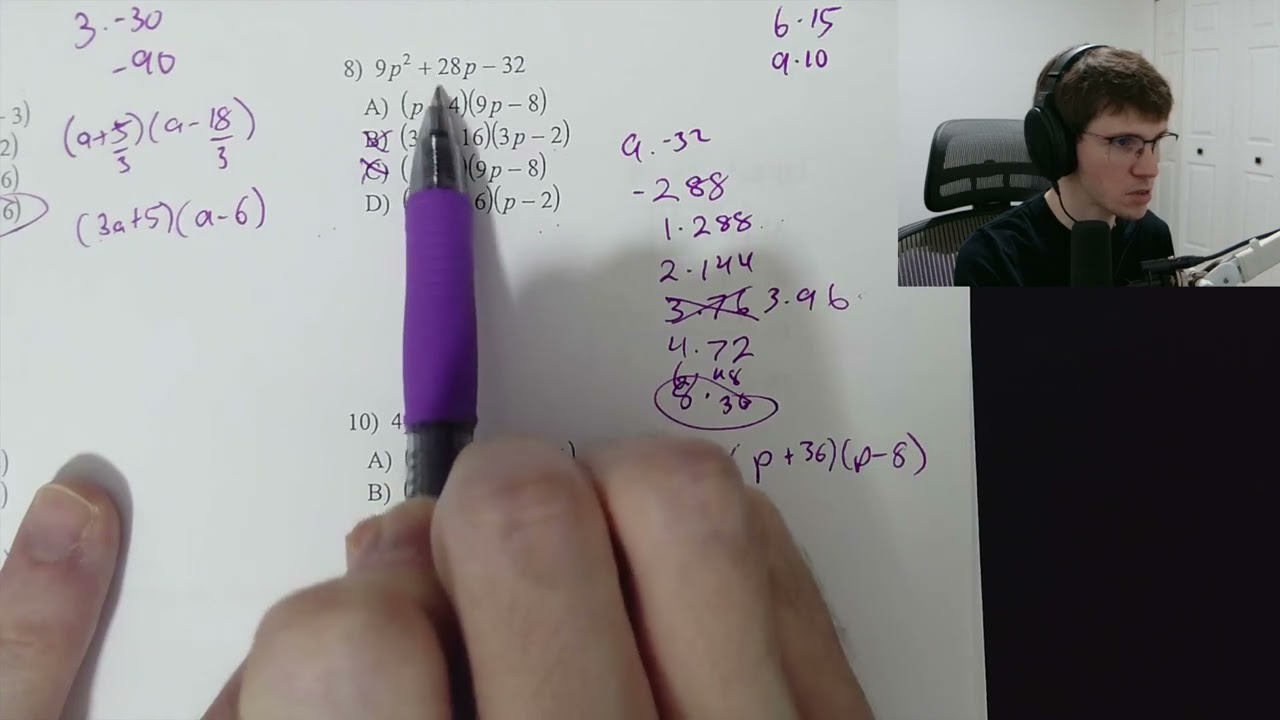 3·-30
-90
(a+5/3)(a-18/3)
(3a+5)(a-6)
- 3)
2)
6)
6)
8) 9p² + 28p − 32
A) (p 4)(9p − 8)
B) (3 16)(3p − 2)
C) ( )(9p − 8)
D) ( 6)(p − 2)
6·15
9·10
9·-32
-288
1·288
2·144
3·76 3·96
4·72
6·48
8·36
(p+36)(p-8)
10) 4
A) (
B) (